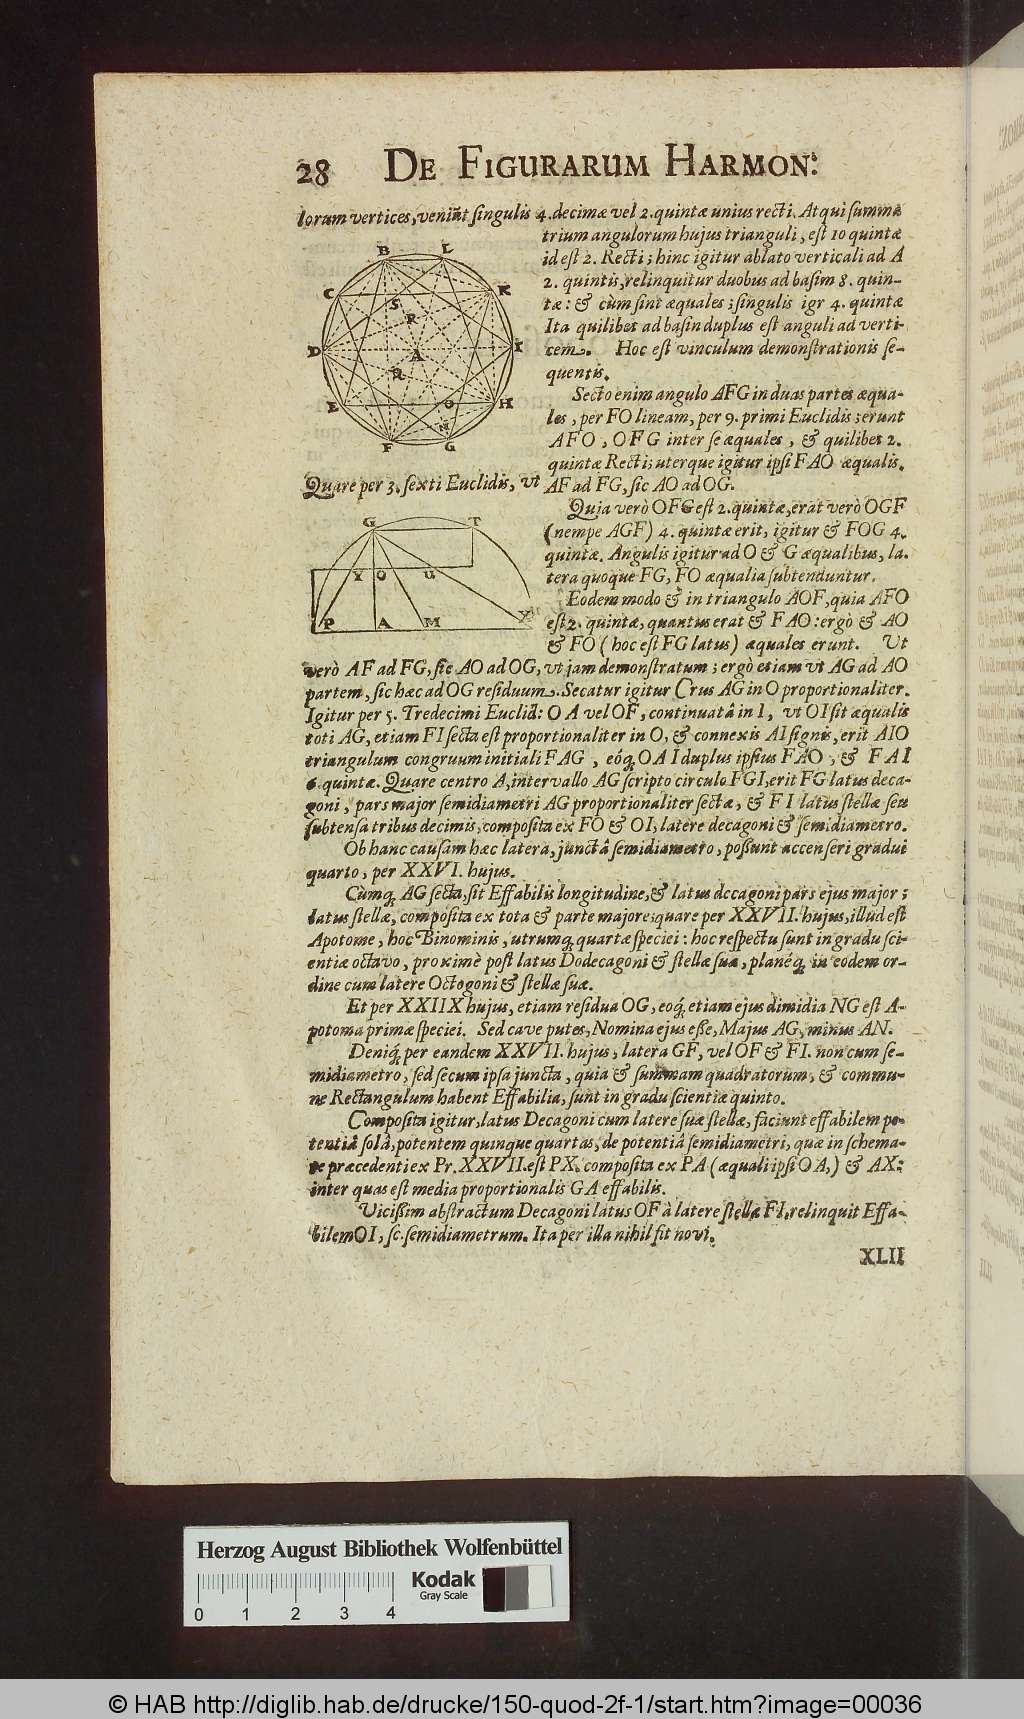 28 DE FIGURARUM HARMON:
lorum vertices, veniũt singulis 4. decimæ vel 2. quintæ unius recti. At qui summa
trium angulorum hujus trianguli, est 10 quintæ
id est 2. Recti; hinc igitur ablato verticali ad A
2. quintis, relinquitur duobus ad basim 8. quin-
tæ: & cùm sint æquales; singulis igr 4. quintæ
Ita quilibet ad basin duplus est anguli ad verti-
cem. Hoc est vinculum demonstrationis se-
quentis.
B L
C K
S
R
D A I
Q
E O H
N
F G
Secto enim angulo AFG in duas partes æqua-
les, per FO lineam, per 9. primi Euclidis; erunt
AFO, OFG inter se æquales, & quilibet 2.
quintæ Recti; uterque igitur ipsi FAO æqualis.
Quare per 3. sexti Euclidis, ut AF ad FG, sic AO ad OG.
Quia verò OFG est 2. quintæ, erat verò OGF
(nempe AGF) 4. quintæ erit, igitur & FOG 4.
quintæ. Angulis igitur ad O & G æqualibus, la-
tera quoque FG, FO æqualia subtenduntur.
Eodem modo & in triangulo AOF, quia AFO
est 2. quintæ, quantus erat & FAO: ergò & AO
& FO (hoc est FG latus) æquales erunt. Ut
G T
Y O U
P A M X
verò AF ad FG, sic AO ad OG, ut jam demonstratum; ergò etiam ut AG ad AO
partem, sic hæc ad OG residuum. Secatur igitur Crus AG in O proportionaliter.
Igitur per 5. Tredecimi Euclid: OA vel OF, continuatâ in I, ut OI sit æqualis
toti AG, etiam FI secta est proportionaliter in O, & connexis AI signis, erit AIO
triangulum congruum initiali FAG, eóq; OAI duplus ipsius FAO, & FAI
6 quintæ. Quare centro A, intervallo AG scripto circulo FGI, erit FG latus deca-
goni, pars major semidiametri AG proportionaliter sectæ, & FI latus stellæ seu
subtensa tribus decimis, composita ex FO & OI, latere decagoni & semidiametro.
Ob hanc causam hæc latera, junctâ semidiametro, possunt accenseri gradui
quarto, per XXVI. hujus.
Cùmq; AG secta, sit Effabilis longitudine, & latus dccagoni pars ejus major;
latus stellæ, composita ex tota & parte majore; quare per XXVII. hujus, illud est
Apotome, hoc Binominis, utrumq; quartæ speciei: hoc respectu sunt in gradu sci-
entiæ octavo, proximè post latus Dodecagoni & stellæ suæ, planéq; in eodem or-
dine cum latere Octogoni & stellæ suæ.
Et per XXIIX hujus, etiam residua OG, eoq; etiam ejus dimidia NG est A-
potoma primæ speciei. Sed cave putes, Nomina ejus esse, Majus AG, minus AN.
Deniq; per eandem XXVII. hujus, latera GF, vel OF & FI. non cum se-
midiametro, sed secum ipsa juncta, quia & summam quadratorum, & commu-
ne Rectangulum habent Effabilia, sunt in gradu scientiæ quinto.
Composita igitur, latus Decagoni cum latere suæ stellæ, faciunt effabilem po-
tentiâ solâ, potentem quinque quartas, de potentiâ semidiametri, quæ in schema-
te præcedenti ex Pr. XXVII. est PX, composita ex PA (æquali ipsi OA,) & AX:
inter quas est media proportionalis GA effabilis.
Vicissim abstractum Decagoni latus OF à latere stellæ FI, relinquit Effa-
bilem OI, sc. semidiametrum. Ita per illa nihil fit novi.
XLII
Herzog August Bibliothek Wolfenbüttel
Kodak
Gray Scale
0 1 2 3 4
© HAB http://diglib.hab.de/drucke/150-quod-2f-1/start.htm?image=00036